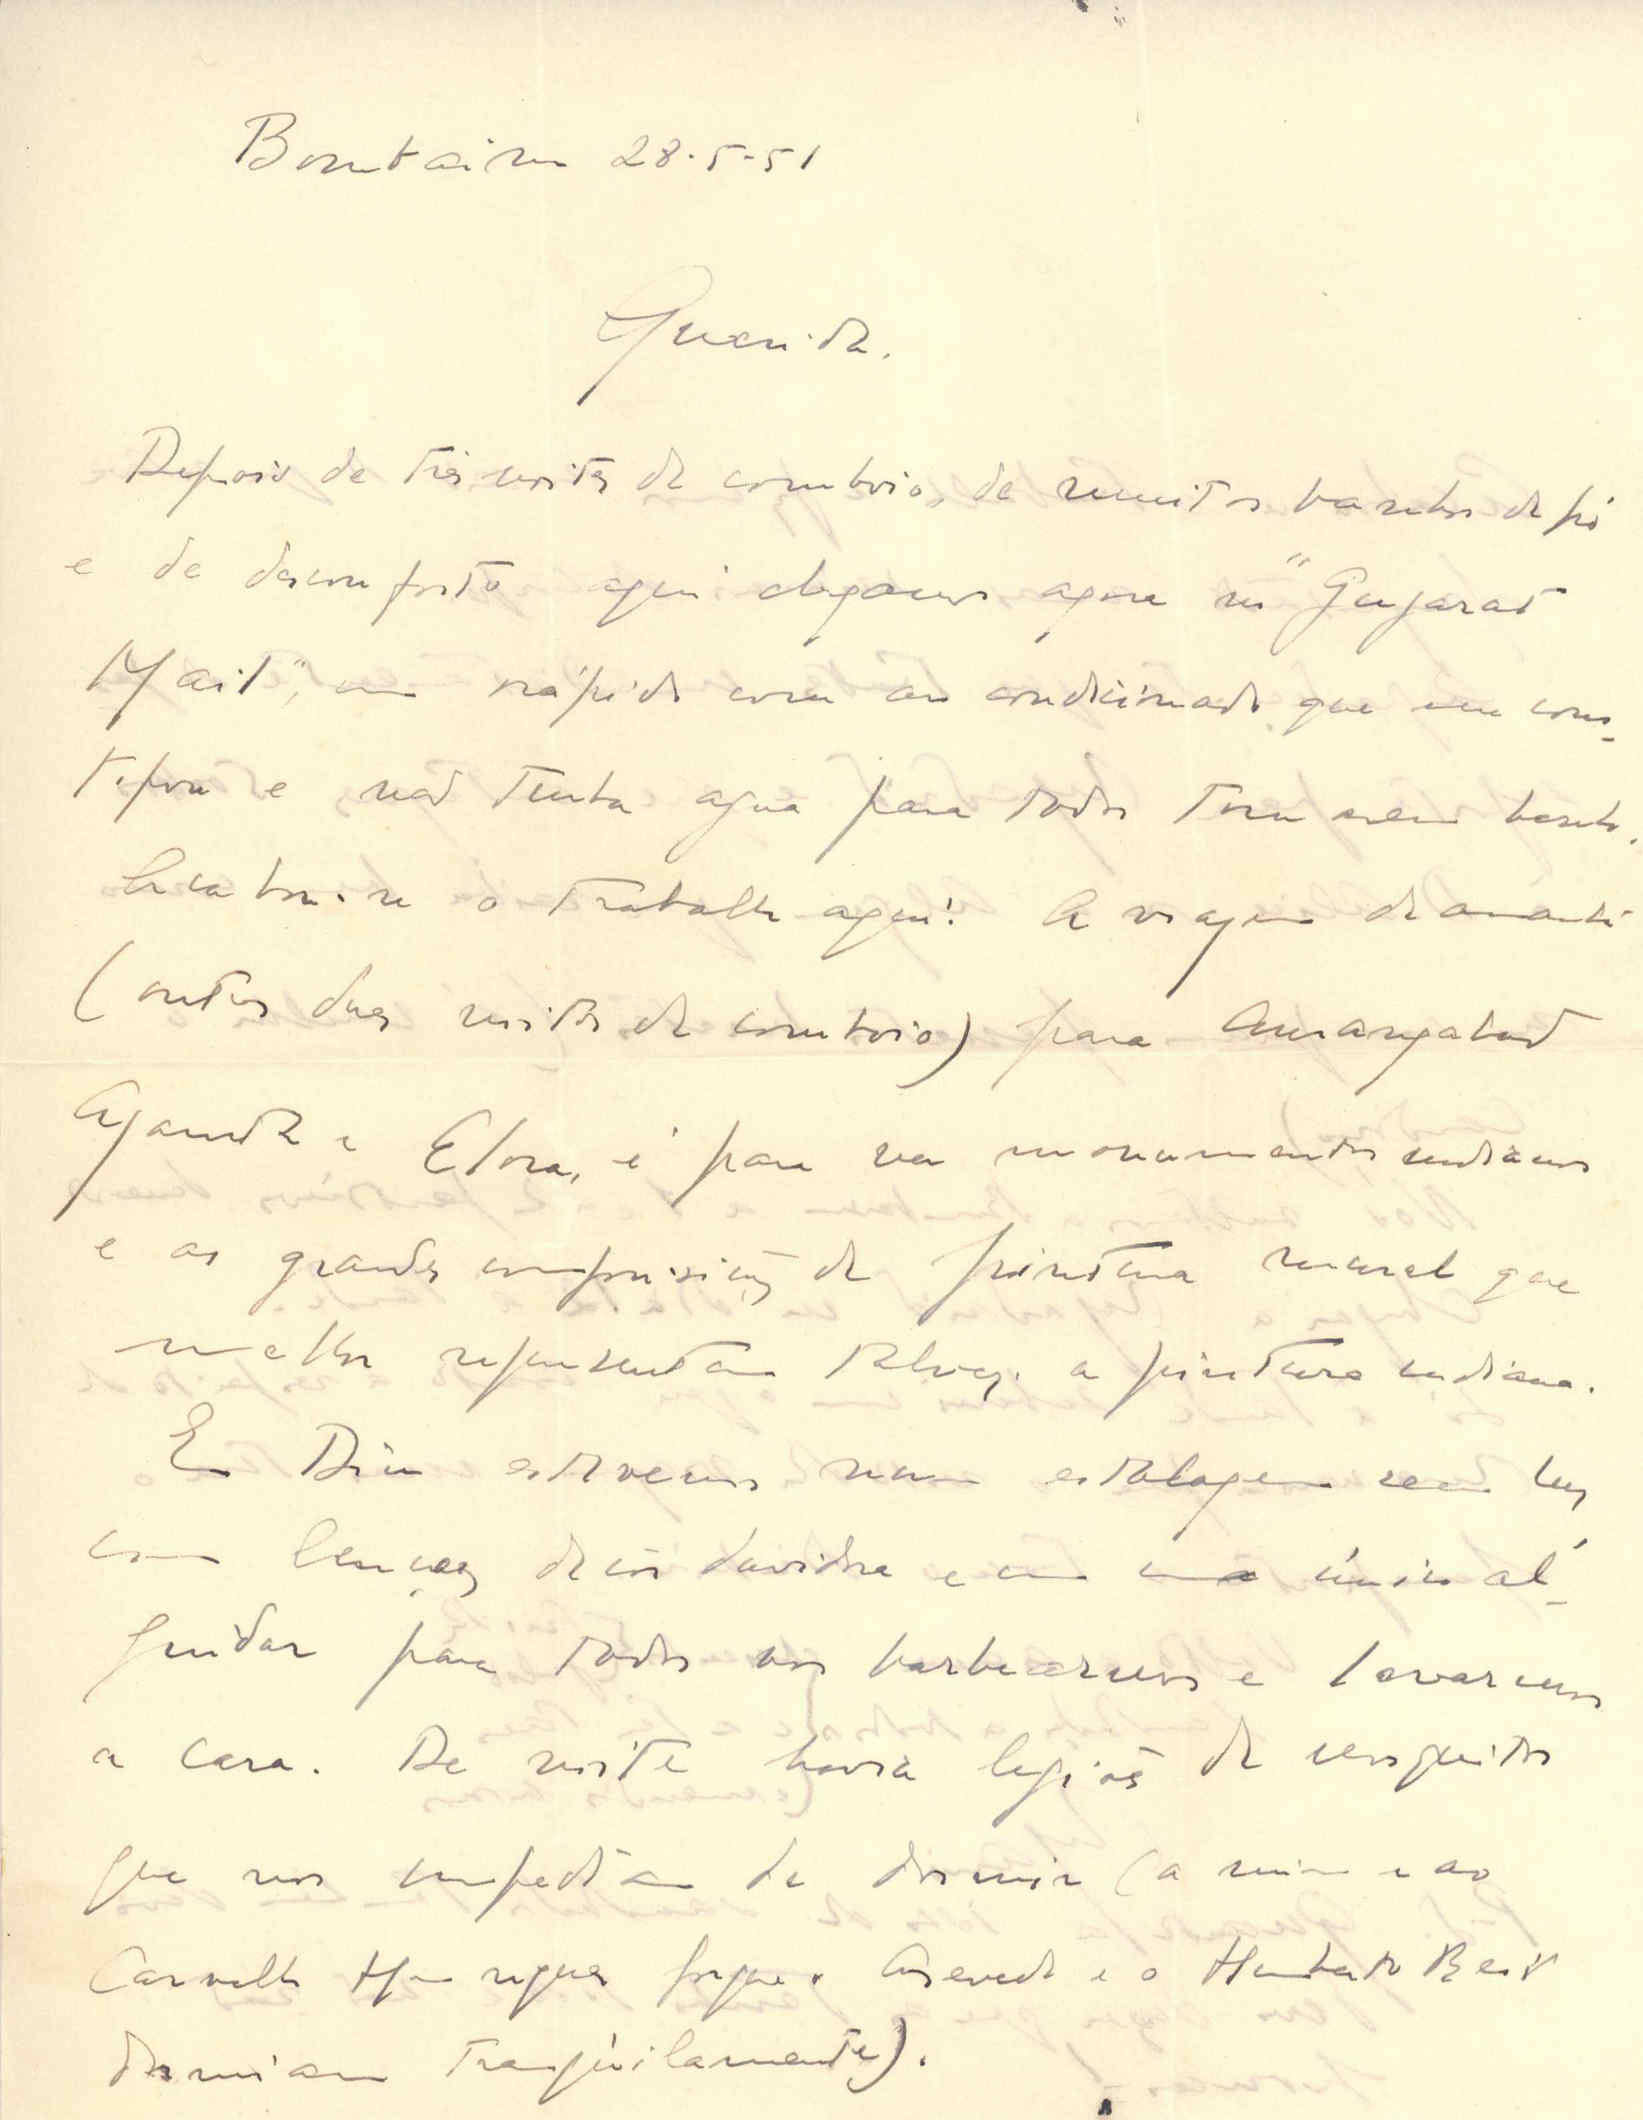 Bombaim 28-5-51
Querida.
Depois de três noites de comboio, de muitos banhos de pó
e de desconforto aqui chegámos agora no "Gujarat
Mail", um rápido com ar condicionado que me cons-
tipou e não tinha agua para todos tomarem banho.
Acabou-se o trabalho aqui. A viagem de amanhã
(outras duas noites de comboio) para Aurangabad
Ajanta e Elora, é para ver monumentos indianos
e as grandes composições de pintura mural que
melhor representam talvez a pintura indiana.
Em Diu estivemos numa estalagem sem luz
com lençoes de côr duvidosa e com um único al-
guidar para todos nos barbearmos e lavarmos
a cara. De noite havia legiões de mosquitos
que nos impediam de dormir (a mim e ao
Carvalho Henriques porque o Azevedo e o Humberto Reis
dormiam tranqùilamente).